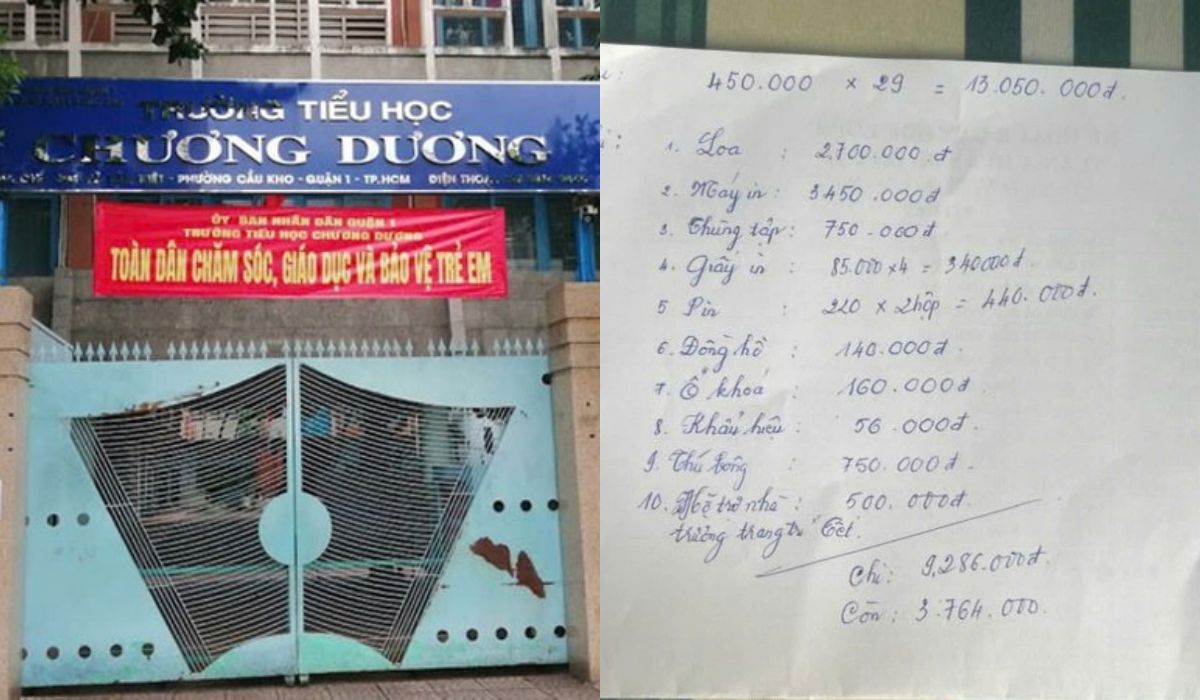 TRƯỜNG TIỂU HỌC
CHƯƠNG DƯƠNG
PHƯỜNG CẦU KHO - QUẬN 1 - TP.HCM ĐIỆN THOẠI
ỦY BAN NHÂN DÂN QUẬN 1
TRƯỜNG TIỂU HỌC CHƯƠNG DƯƠNG
TOÀN DÂN CHĂM SÓC, GIÁO DỤC VÀ BẢO VỆ TRẺ EM
450.000 x 29 = 13.050.000đ.
1. Loa : 2,700.000.đ
2. Máy in : 3.450.000đ
3. Thùng tập : 750.000đ.
4. Giấy in : 85.000 x 4 = 340000đ.
5. Pin : 220 x 2 hộp = 440.000đ.
6. Đồng hồ : 140.000đ.
7. Ổ khoá : 160.000đ.
8. Khẩu hiệu : 56.000đ.
9. Thú bông : 750.000đ.
10. Hỗ trợ nhà : 500.000đ.
trường trang trí Tết.
Chi: 9,286.000đ.
Còn: 3.764.000.